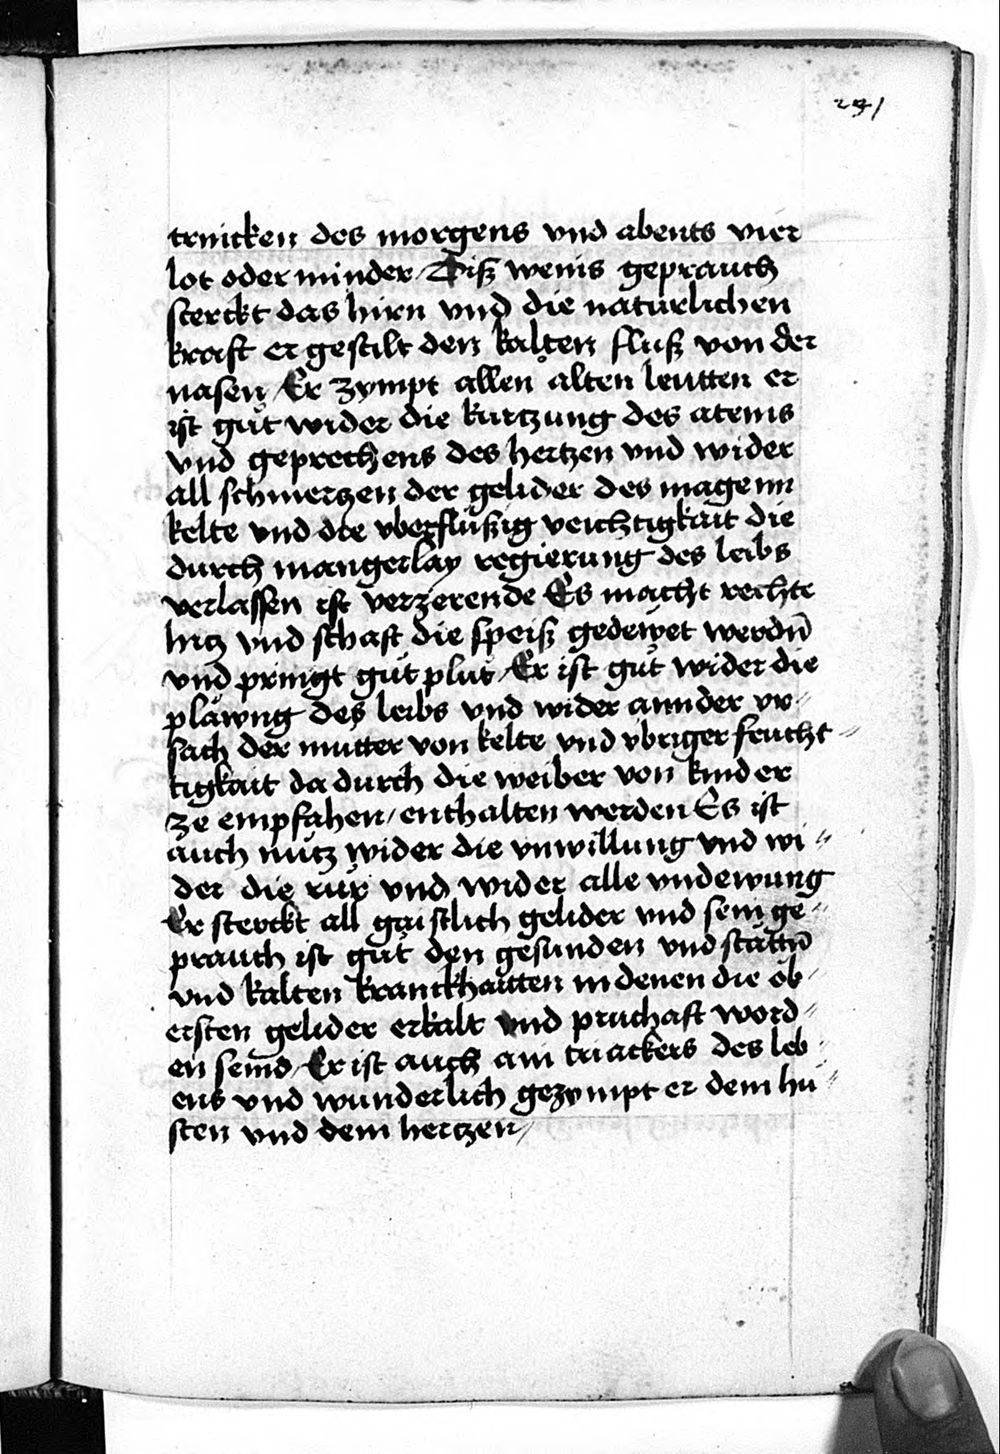 241
trincken des morgens vnd abents vier
lot oder minder / Diß weins geprauch
sterckt das hirn vnd die natürlichen
kraft er gestilt den kalten fluß von der
nasen / Er zympt allen alten leutten er
ist gůt wider die kurtzung des atems
vnd geprechens des hertzen vnd wider
all schmertzen der gelider des magenn
kelte vnd die vberflüßig veichtigkait die
durch mangerlay regierung des leibs
verlassen ist verzerende Es macht rechte
hitz vnd schaft die speiß gedewet werdn̄
vnd prinngt gůt plůt / Er ist gůt wider die
pläwng des leibs vnd wider annder vr〃
sach der mutter von kelte vnd vbriger feucht〃
tigkait da durch die weiber von kinder
ze empfahen / enthalten werden Es ist
auch nütz wider die vnwillung vnd wi〃
der die růr vnd wider alle vndewung
Er sterckt all gaistlich gelider vnd sein ge〃
prauch ist gůt den gesunden vnd stättn̄
vnd kalten kranckhaitten in denen die ob〃
ersten gelider erkalt vnd pruchaft word〃
en seind / Er ist auch ain triackers des leb〃
ens vnd wunderlich gezympt er dem hu〃
sten vnd dem hertzen /